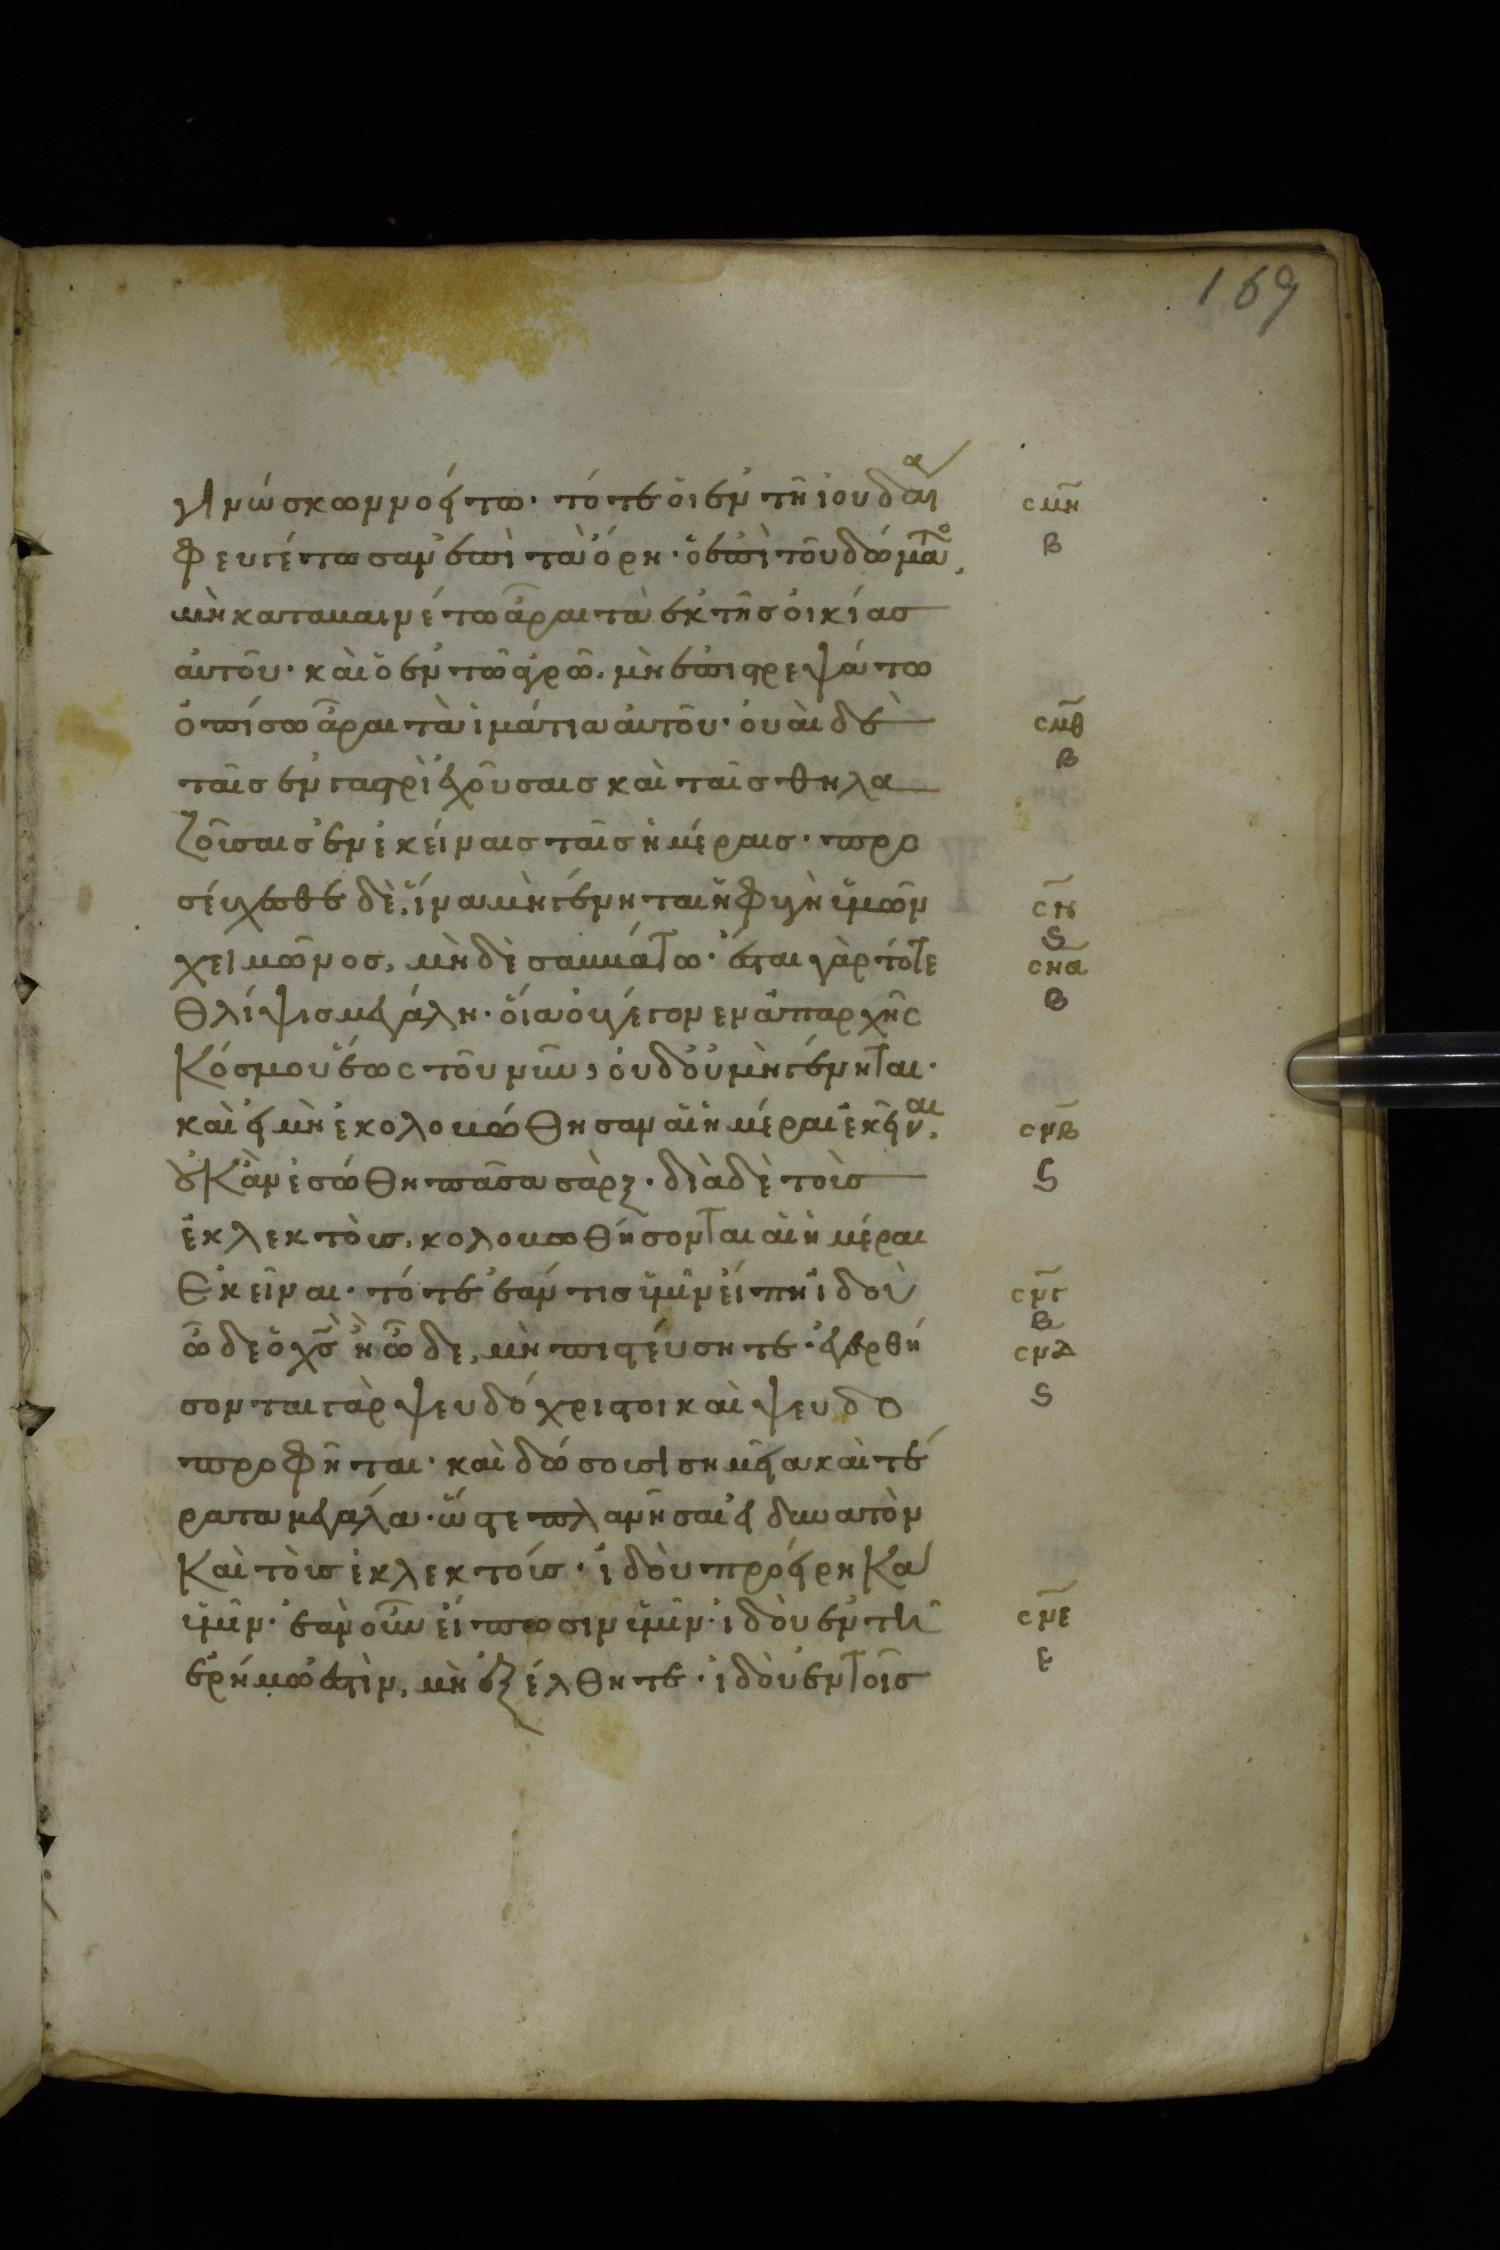 169
γινώσκων νοείτω· τότε οἱ ἐν τῆ ἰουδαία
φευγέτωσαν ἐπὶ τὰ ὄρη· ὁ ἐπὶ τοῦ δώματο,
μὴ καταβαινέτω ἆραι τὰ ἐκ τῆς οἰκίας
αὐτοῦ· καὶ ὁ ἐν τῶ ἀγρῶ, μὴ ἐπιστρεψάτω
ὀπίσω ἆραι τὰ ἱμάτια αὐτοῦ· οὐαὶ δὲ
ταῖς ἐν γαστρὶ ἐχούσαις καὶ ταῖς θηλα
ζούσαις ἐν ἐκείναις ταῖς ἡμέραις· προ
σεύχεσθε δὲ, ἵνα μὴ γένηται ἡ φυγὴ ὑμῶν
χειμῶνος, μὴ δὲ σαββάτω· ἔσται γὰρ τότε
θλίψις μεγάλη· οἵα οὐ γέγονεν ἀπαρχῆς
κόσμου ἕως τοῦ νῦν, οὐδ' οὐ μὴ γένηται·
καὶ εἰ μὴ ἐκολοβώθησαν αἱ ἡμέραι ἐκεῖναι,
οὐκ ἂν ἐσώθη πᾶσα σὰρξ· διὰ δὲ τοὺς
ἐκλεκτοὺς, κολοβωθήσονται αἱ ἡμέραι
ἐκεῖναι· τότε ἐάν τις ὑμῖν εἴπη ἰδοὺ
ὧδε ὁ χς ἢ ὧδε, μὴ πιστεύσητε· ἐγερθή
σονται γὰρ ψευδόχριστοι καὶ ψευδο
προφῆται· καὶ δώσουσι σημεῖα καὶ τέ
ρατα μεγάλα· ὥστε πλανῆσαι εἰ δυνατὸν
καὶ τοὺς ἐκλεκτούς· ἰδοὺ προείρηκα
ὑμῖν· ἐὰν οὖν εἴπωσιν ὑμῖν· ἰδοὺ ἐν τῆ
ἐρήμω ἐστὶν, μὴ ἐξέλθητε· ἰδοὺ ἐν τοῖς
σμη
β
σμθ
β
σν
ς
σνα
β
σνβ
ς
σνγ
β
σνδ
ς
σνε
ε